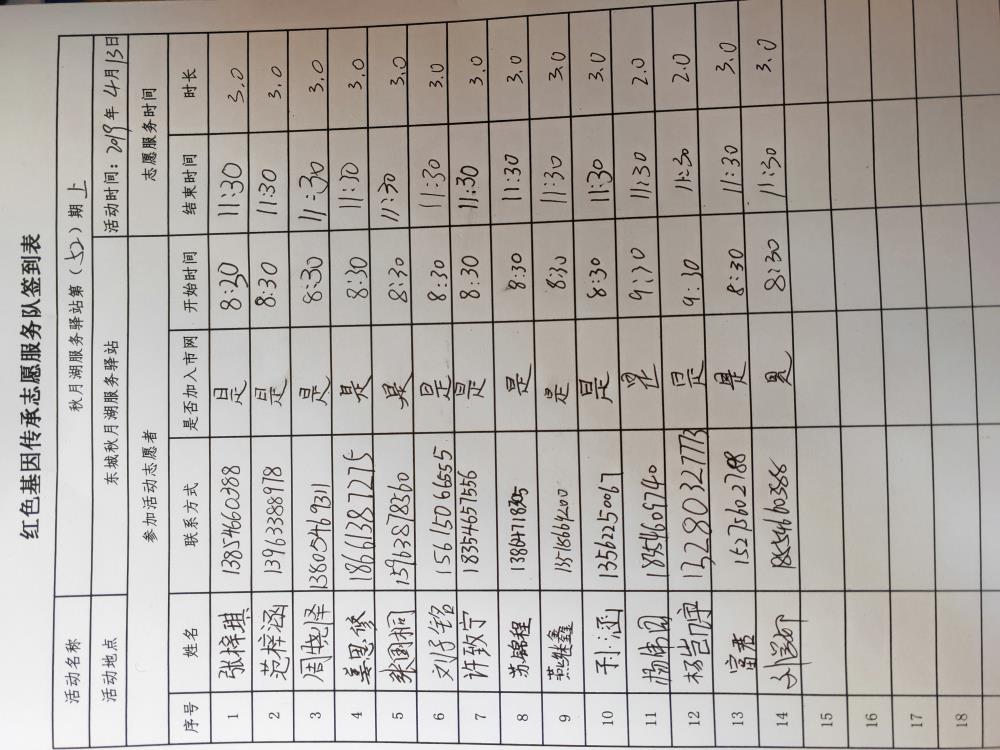 红色基因传承志愿服务队签到表
活动名称 秋月湖服务驿站第(52)期上
活动地点 东城秋月湖服务驿站 活动时间:2019年4月13日
参加活动志愿者 志愿服务时间
序号 姓名 联系方式 是否加入市网 开始时间 结束时间 时长
1 张梓琪 13854660388 是 8:30 11:30 3.0
2 范梓涵 13963388978 是 8:30 11:30 3.0
3 周晓怿 13805469311 是 8:30 11:30 3.0
4 姜思修 18661387275 是 8:30 11:30 3.0
5 张国桐 15963878360 是 8:30 11:30 3.0
6 刘子铭 15615066555 是 8:30 11:30 3.0
7 许致宁 18354657556 是 8:30 11:30 3.0
8 苏锦程 是 8:30 11:30 3.0
9 燕继鑫 是 8:30 11:30 3.0
10 涵 13562250067 是 8:30 11:30 3.0
11 是 9:30 11:30 2.0
12 杨岂宁 13280327773 是 9:30 11:30 2.0
13 15275602788 是 8:30 11:30 3.0
14 是 8:30 11:30 3.0
15
16
17
18